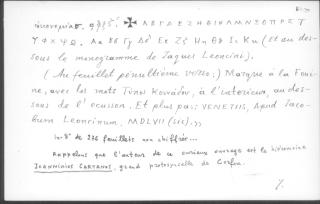 ΑΒΓΔΕΖΗΘΙΚΛΜΝΞΟΠΡΣΤ
ΥΦΧΨΩ. Αα Ββ Γγ Δδ Εε Ζζ Ηη Θθ Ιι Κκ (Et au des-
sous le monogramme de Jaques Leoncini).
(Au feuillet pénultième :) Marque à la Foui-
ne, avec les mots Τύπῳ, à l'intérieur, au des-
sous de l'écusson. Et plus pas: VENETIIS, Apud Jaco-
bum Leoncinum, MDLVII (sic). »
In-8° de 236 feuillets non chiffrés...
Rappelons que l'auteur de ce curieux ouvrage est le hiéromoine
IOANNIKIOS CARTANOS, grand protosyncelle de Corfou.